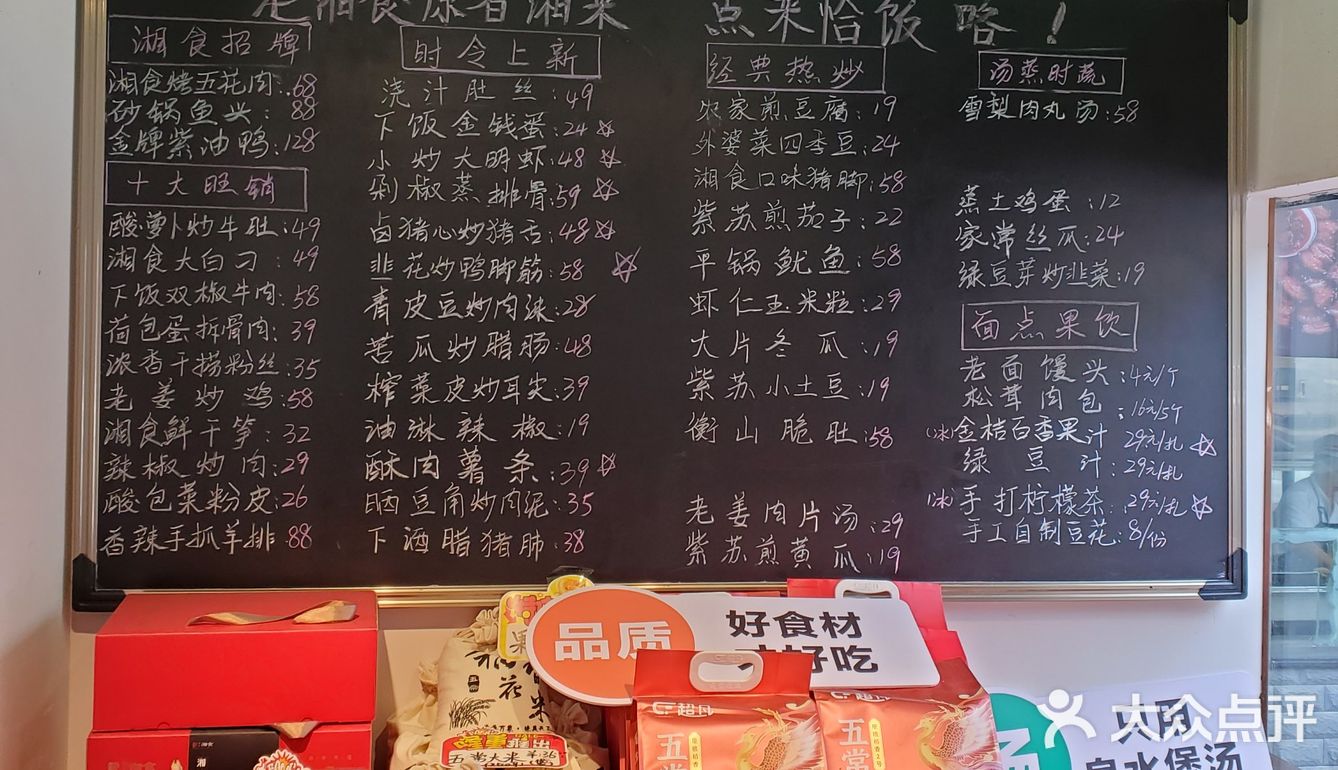 老湘食原香湘菜 点来恰饭咯！
湘食招牌
湘食烤五花肉:68
砂锅鱼头:88
金牌紫油鸭:128
十大旺销
酸萝卜炒牛肚:49
湘食大白刁:49
下饭双椒牛肉:58
荷包蛋拆骨肉:39
浓香干捞粉丝:35
老姜炒鸡:58
湘食鲜干笋:32
辣椒炒肉:29
酸包菜粉皮:26
香辣手抓羊排 88
时令上新
浇汁肚丝:49
下饭金钱蛋:24☆
小炒大明虾:48☆
剁椒蒸排骨:59☆
卤猪心炒猪舌:48☆
韭花炒鸭脚筋:58 ☆
青皮豆炒肉沫:28
苦瓜炒腊肠:48
榨菜皮炒耳尖:39
油淋辣椒:19
酥肉薯条:39☆
晒豆角炒肉泥:35
下酒腊猪肺:38
经典热炒
农家煎豆腐:19
外婆菜四季豆:24
湘食口味猪脚:58
紫苏煎茄子:22
平锅鱿鱼:58
虾仁玉米粒:29
大片冬瓜:19
紫苏小土豆:19
衡山脆肚:58
老姜肉片汤:29
紫苏煎黄瓜:19
汤蒸时蔬
雪梨肉丸汤:58
蒸土鸡蛋:12
家常丝瓜:24
绿豆芽炒韭菜:19
面点果饮
老面馒头:4元/个
松茸肉包:16元/5个
(冰)金桔百香果汁 29元/扎☆
绿豆汁:29元/扎
(冰)手打柠檬茶:29元/扎☆
手工自制豆花:8/份
品质
好食材
好吃
稻花
米
隆重推出
五常大米
超凡
五常
五常
湘食
湘
汤
泉水煲汤
大众点评